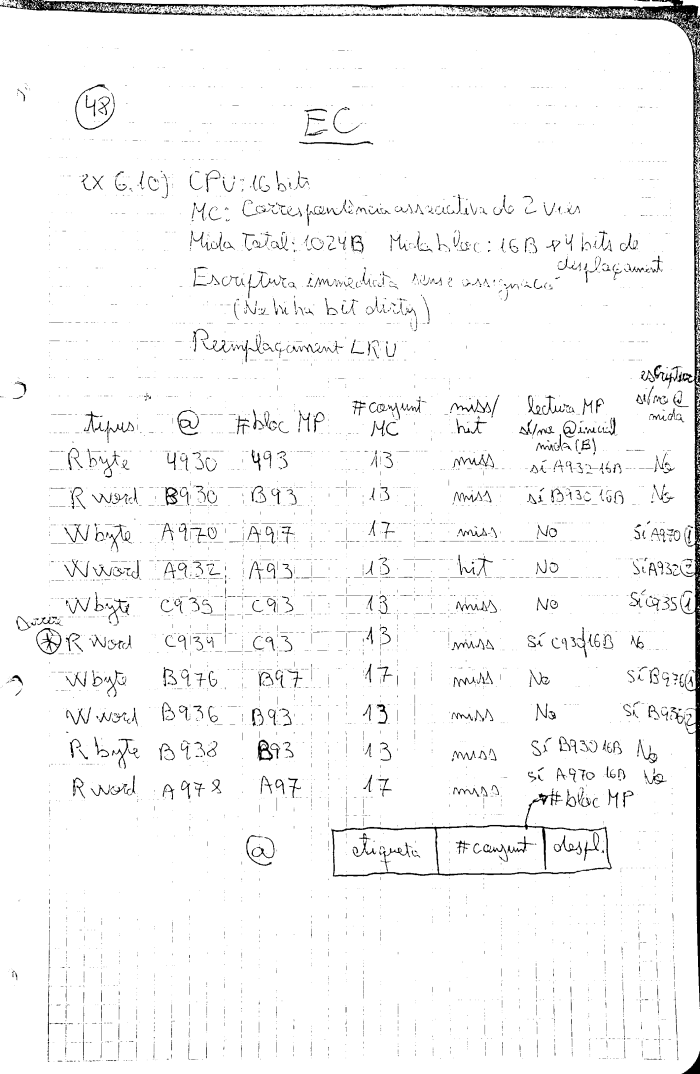 48
EC
ex 6.10) CPU: 16 bits
MC: Correspondència associativa de 2 vies
Mida total: 1024B Mida bloc: 16B → 4 bits de
desplaçament
Escriptura immediata sense assignació
(No hi ha bit dirty)
Reemplaçament LRU
tipus @ #bloc MP #conjunt MC miss/hit lectura MP sí/no @inicial mida (B) escriptura sí/no @ mida
R byte 4930 493 13 miss sí A932 16B No
R word B930 B93 13 miss sí B930 16B No
W byte A970 A97 17 miss No Sí A970 (1)
W word A932 A93 13 hit NO Sí A932 (2)
W byte C935 C93 13 miss No Sí C935 (1)
* R word C934 C93 13 miss Sí C930/16B No
W byte B976 B97 17 miss No Sí B976 (1)
W word B936 B93 13 miss No Sí B936 (2)
R byte B938 B93 13 miss Sí B930 16B No
R word A978 A97 17 miss sí A970 16B No
#bloc MP
@ etiqueta #conjunt despl.